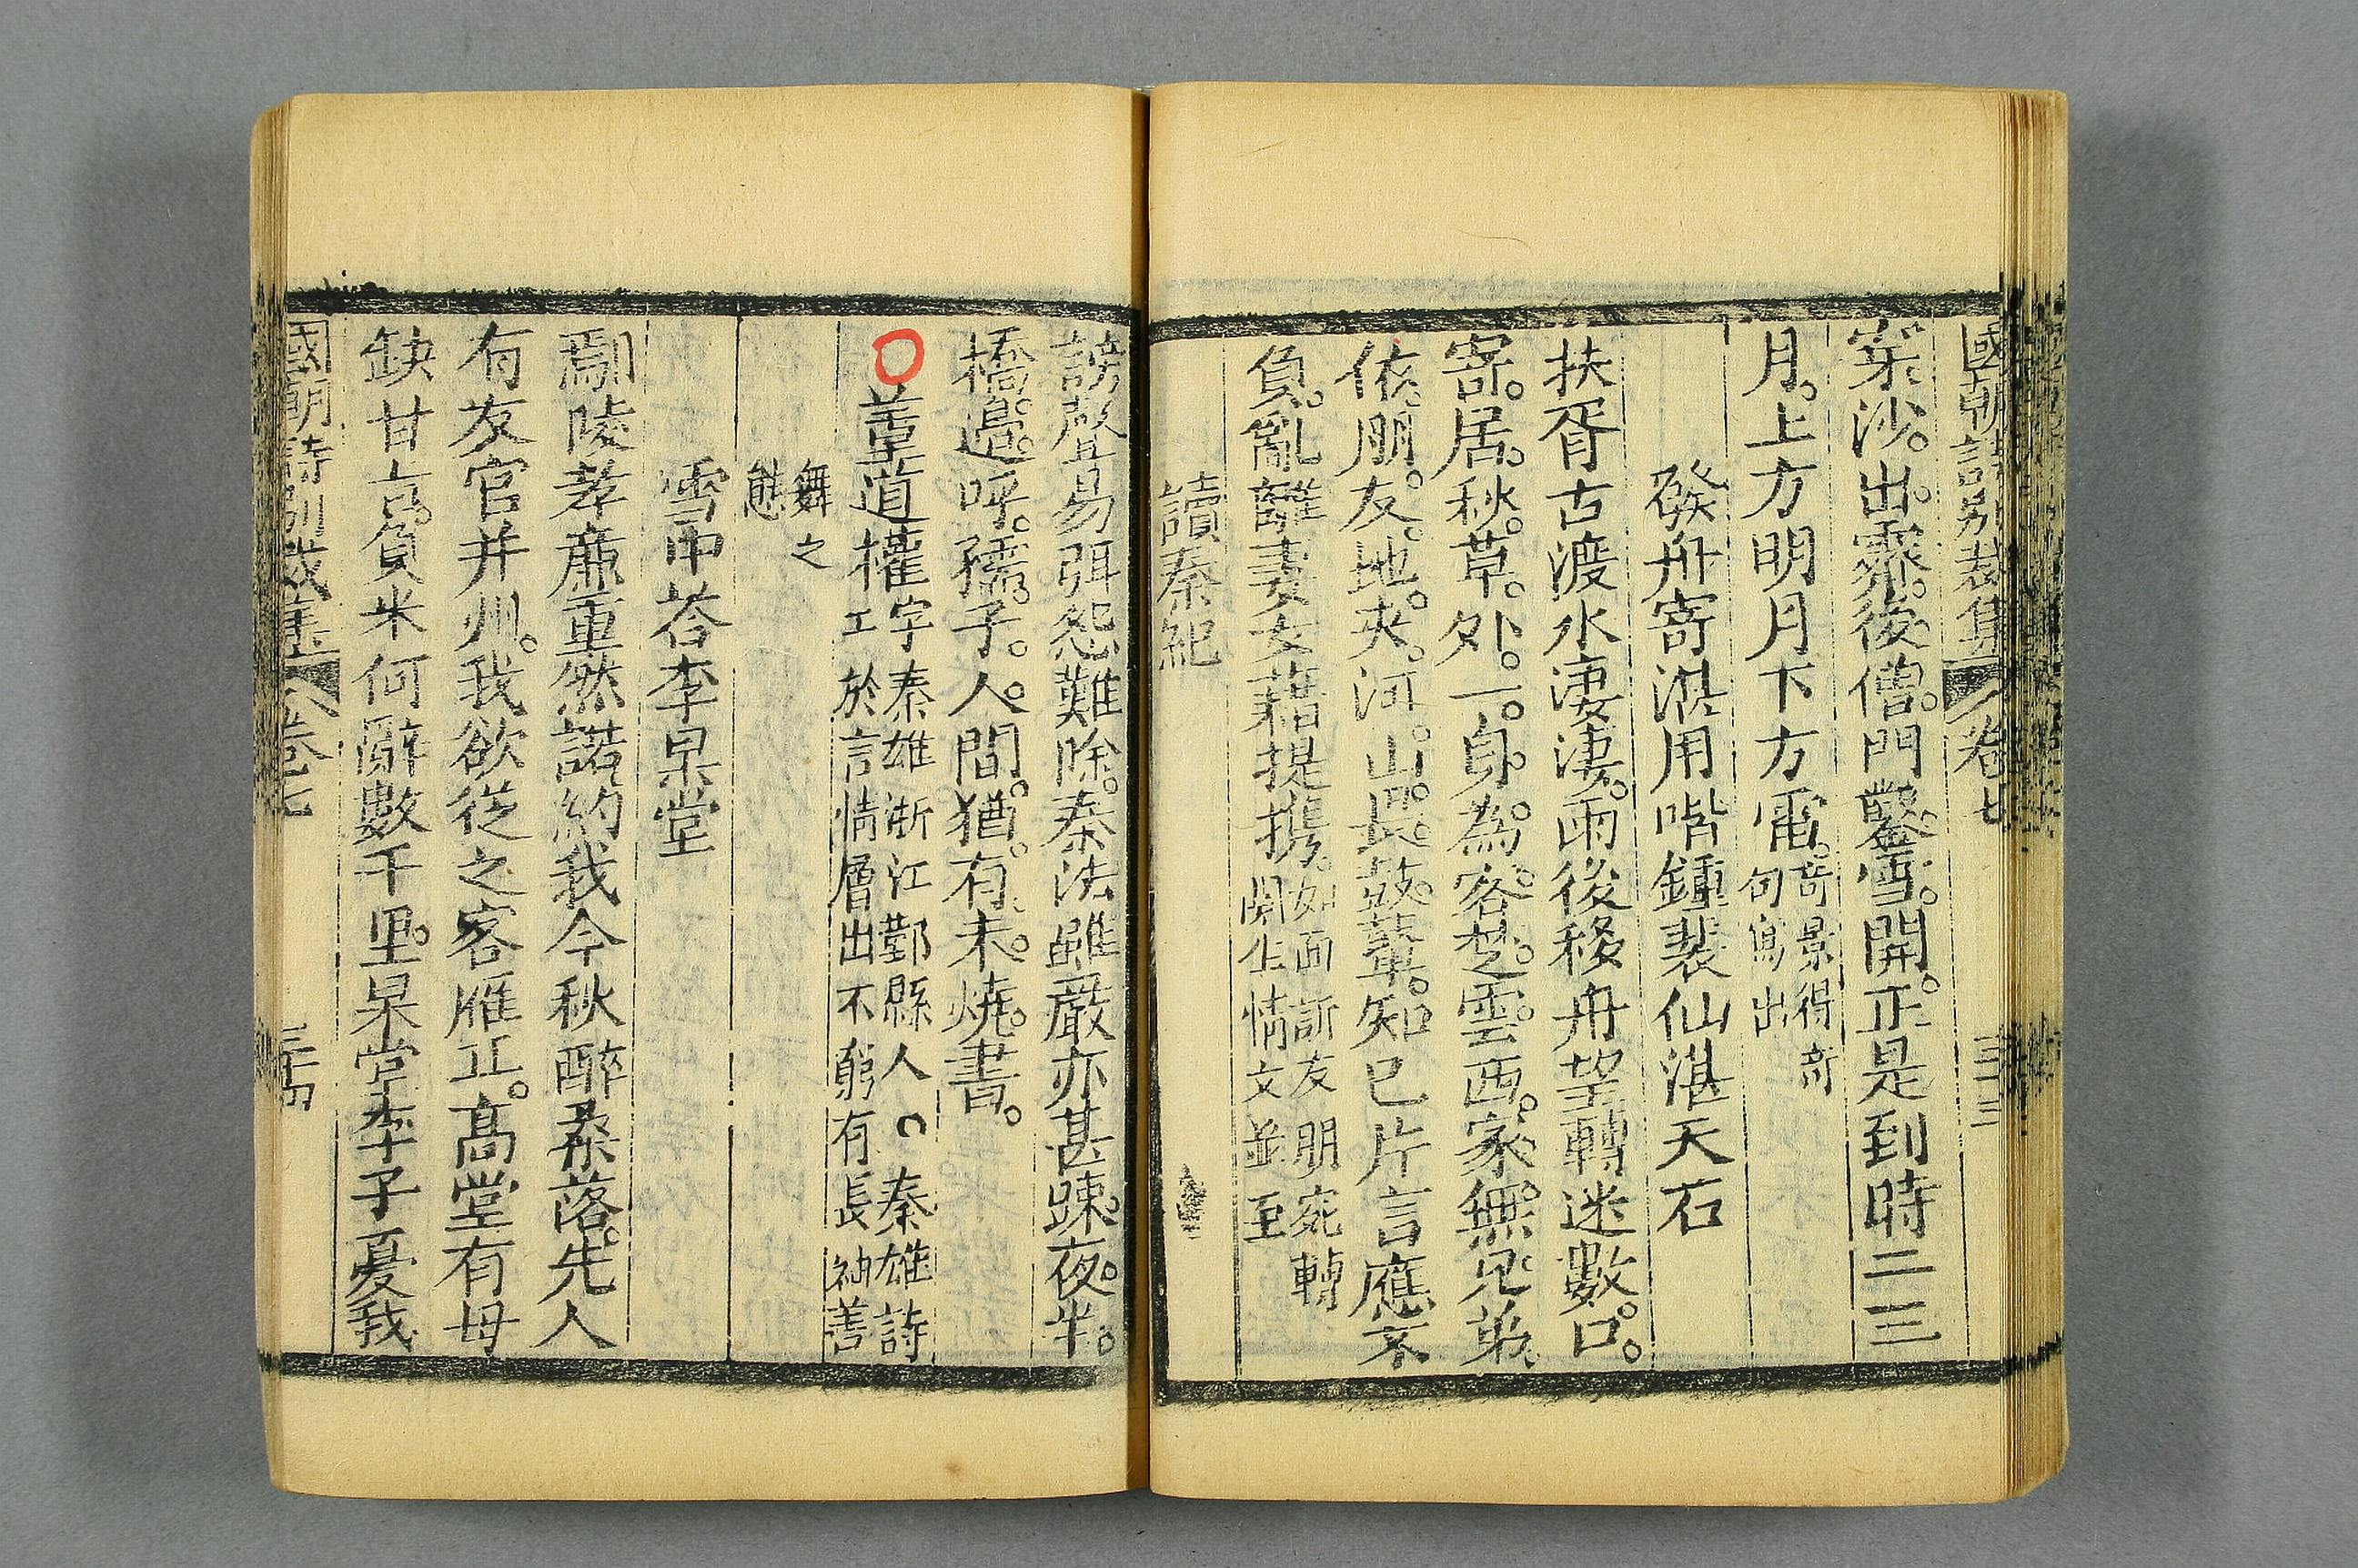 國朝詩別裁集 卷七 三十三
寀沙出霧後僧門鑿雪開正是到時二三
月上方明月下方雷奇景得奇
句寫出
發舟寄湛用喈鍾裴仙湛天石
扶胥古渡水淒淒雨後移舟望轉迷數口
寄居秋草外一身為客楚雲西家無兄弟
依朋友地夾河山長鼓鼙知已片言應不
負亂離妻女藉提攜如面訢友朋宛轉
關生情文並至
讀秦紀
謗聲易弭怨難除秦法雖嚴亦甚踈夜半
橋邉呼孺子人間猶有未燒書
董道權字秦雄浙江鄞縣人秦雄詩
工於言情層出不窮有長袖善
舞之
態
雪中荅李杲堂
鄢陵孝廉重然諾約我今秋醉桑落先人
有友官并州我欲從之客雁正高堂有母
缺甘旨負米何辭數千里杲堂李子憂我
國朝詩別裁集 卷七 三十四